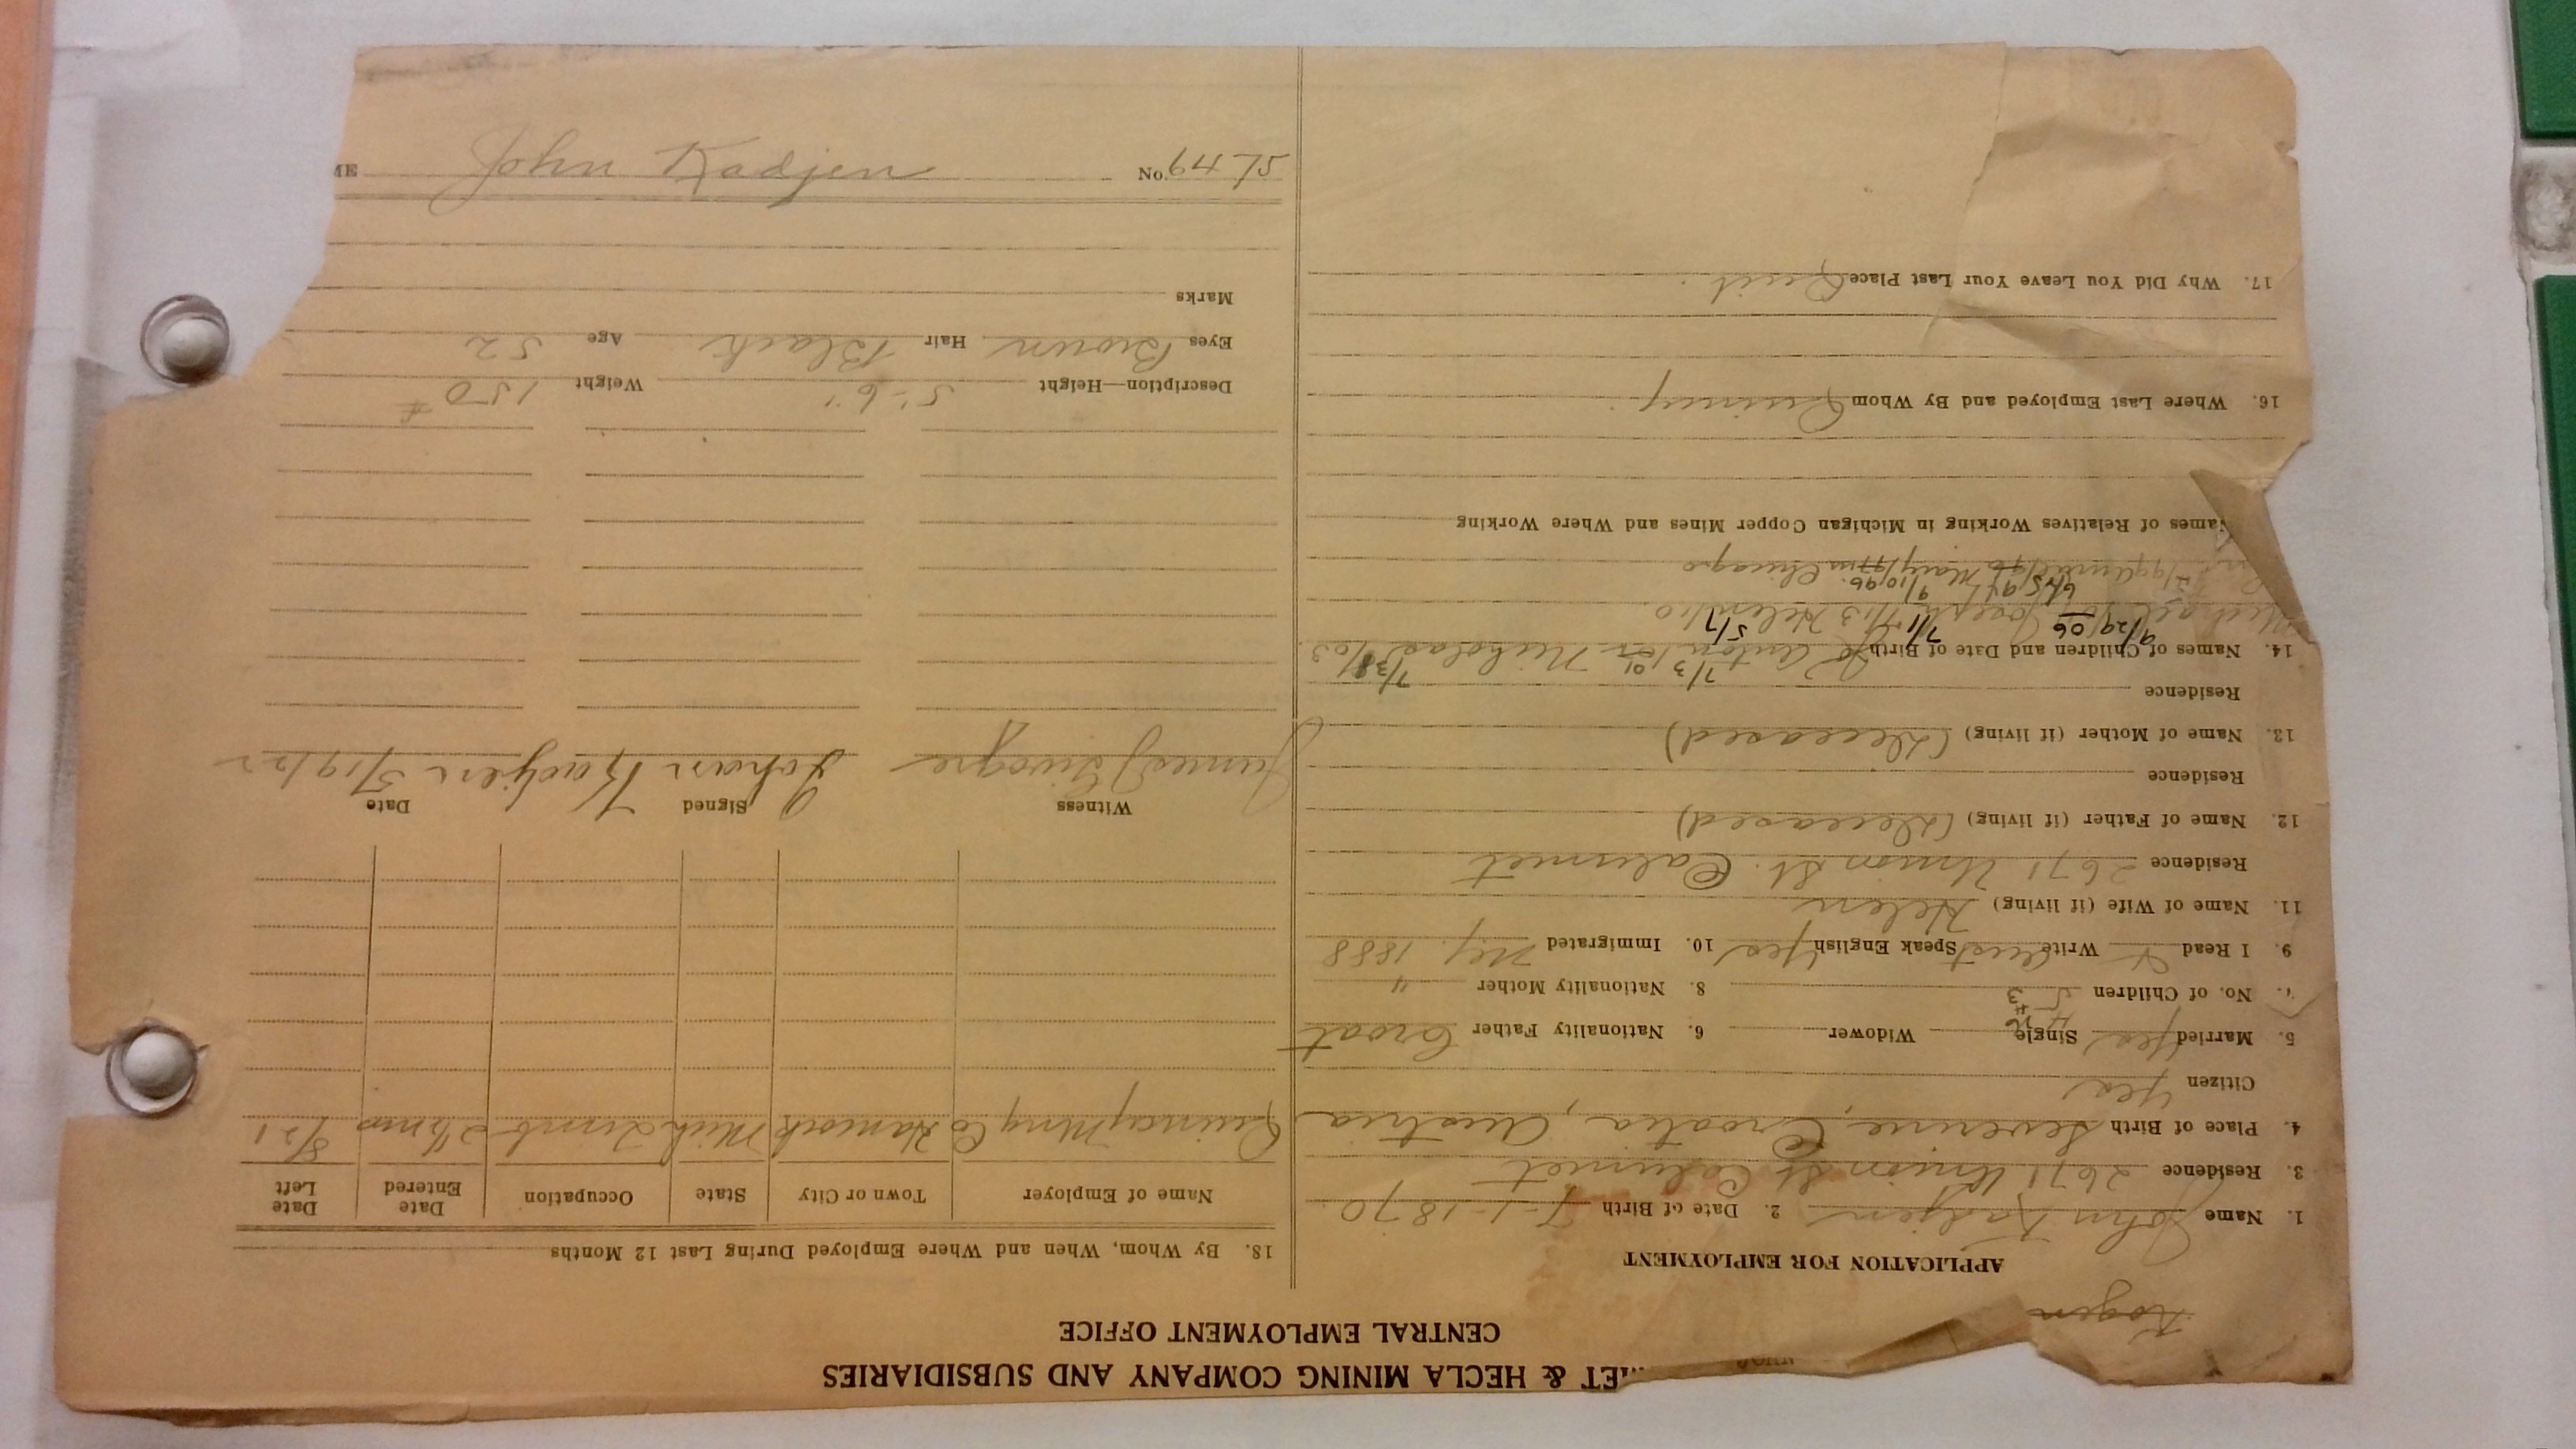 MET & HECLA MINING COMPANY AND SUBSIDIARIES
CENTRAL EMPLOYMENT OFFICE
Kogen
APPLICATION FOR EMPLOYMENT
1. Name John Kadjen 2. Date of Birth 7-1-1870
3. Residence 2671 Union St. Calumet
4. Place of Birth Severine, Croatia, Austria
Citizen Yes
5. Married Yes Single Widower 6. Nationality Father Croat
7. No. of Children 8. Nationality Mother "
9. I Read Write Aust Speak English Yes 10. Immigrated 1888
11. Name of Wife (if living) Helen
Residence 2671 Union St. Calumet
12. Name of Father (if living) (Deceased)
Residence
13. Name of Mother (if living) (Deceased)
Residence
14. Names of Children and Date of Birth Anton Nicholas /03
Michael Joseph Helen /10
Mary Chicago
Names of Relatives Working in Michigan Copper Mines and Where Working
16. Where Last Employed and By Whom Quincy
17. Why Did You Leave Your Last Place Quit.
18. By Whom, When and Where Employed During Last 12 Months
Name of Employer Town or City State Occupation Date Entered Date Left
Quincy Mng Co Hancock Mich 8/21
Witness Signed Date
James Johan Kadjen 5/19/22
Description—Height 5'-6" Weight 150 #
Eyes Brown Hair Black Age 52
Marks
ME John Kadjen No.